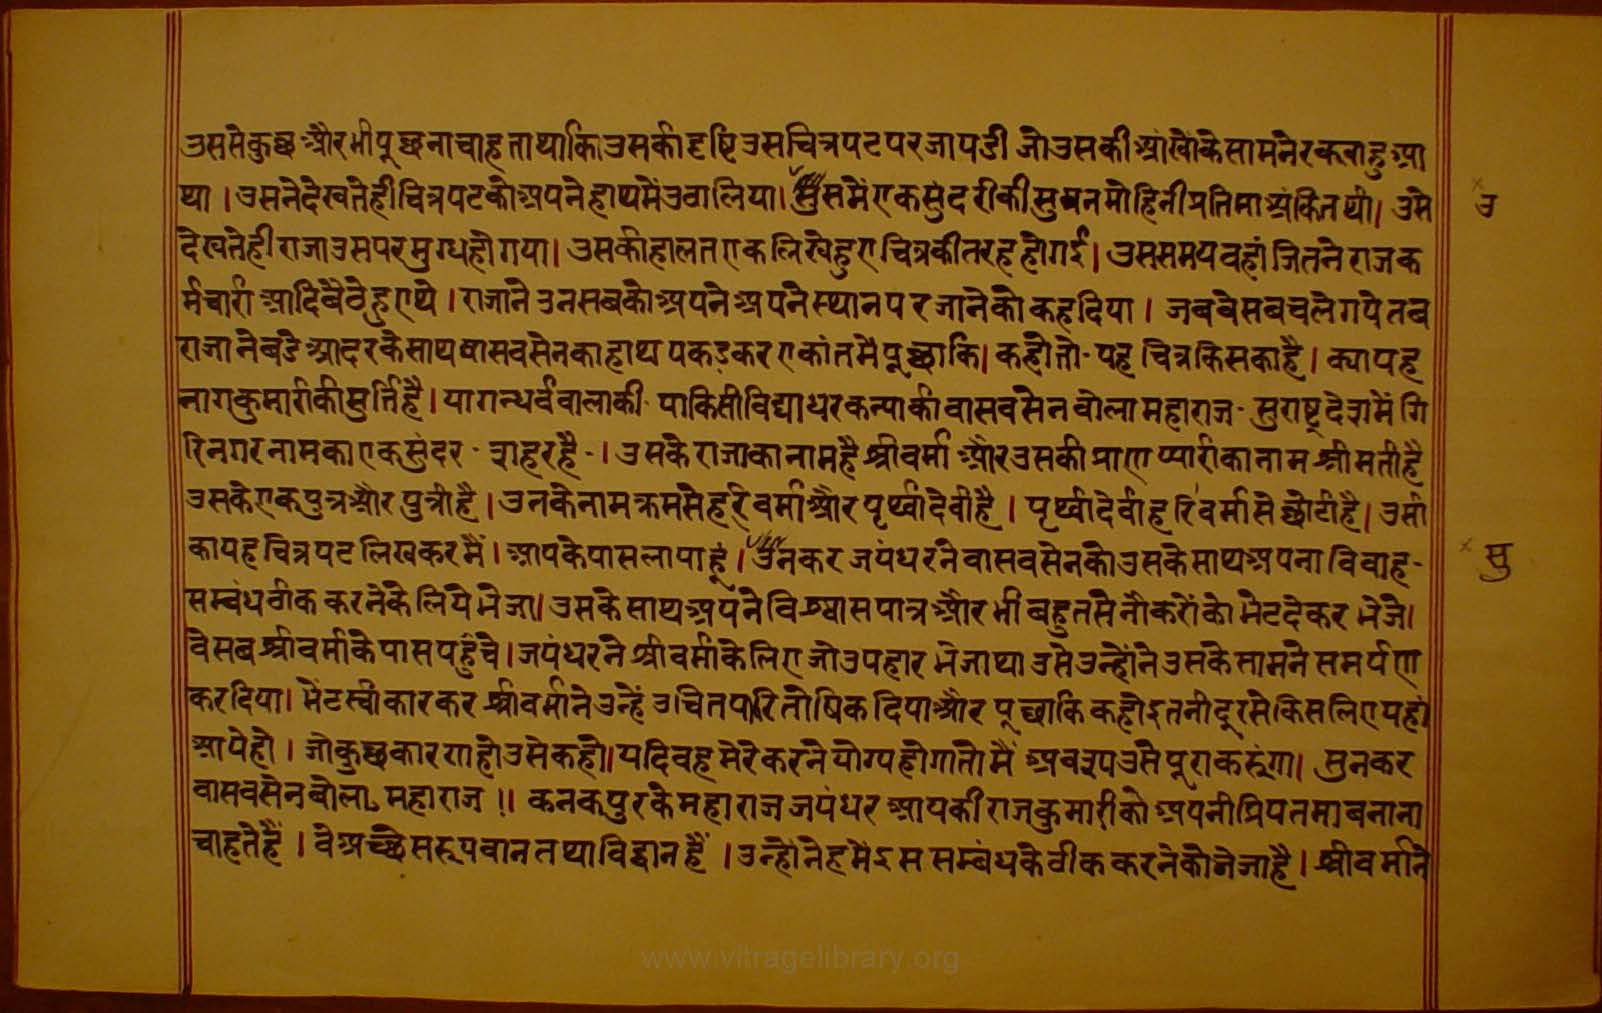 उससे कुछ और भी पूछना चाहता था कि उसकी दृष्टि उस चित्रपट पर जा पडी जो उसकी आंखों के सामने रक्खा हुआ
था। उसने देखते ही चित्रपट को अपने हाथ में उठा लिया। सुसमें एक सुंदरी की सुमनमोहिनी प्रतिमा अंकित थी। उसे
उ
देखते ही राजा उस पर मुग्ध हो गया। उसकी हालत एक लिखे हुए चित्र की तरह हो गई। उस समय वहां जितने राजक
र्मचारी आदि बैठे हुए थे। राजा ने उन सबको अपने अपने स्थान पर जाने को कह दिया। जब वे सब चले गये तब
राजा ने बडे आदर के साथ वासवसेन का हाथ पकड़कर एकांत मै पूछा कि। कहो तो - यह चित्र किसका है। क्या यह
नागकुमारी की मुर्ति है। या गन्धर्व वाला की - या किसी विद्याधर कन्या की वासवसेन वोला महाराज - सुराष्ट्र देश में गि
रिनगर नाम का एक सुंदर - शहर है -। उसके राजा का नाम है श्रीवर्मा और उसकी प्राण प्यारी का नाम श्रीमती है
उसके एक पुत्र और पुत्री है। उनके नाम क्रम से हरिवर्मा और पृथ्वीदेवी है। पृथ्वीदेवी हरिवर्मा से छोटी है। उसी
का यह चित्रपट लिखकर मैं। आपके पास लाया हूं। उनकर जयंधर ने वासवसेन को उसके साथ अपना विवाह -
सु
सम्बंध ठीक करने के लिये भेजा। उसके साथ अपने विश्वासपात्र और भी बहुत से नौकरों को भेट देकर भेजे।
वे सब श्रीवर्मा के पास पहुंचे। जयंधर ने श्रीवर्मा के लिए जो उपहार भेजा था उसे उन्होंने उसके सामने समर्पण
कर दिया। भेंट स्वीकार कर श्रीवर्मा ने उन्हें उचित पारितोषिक दिया और पूछा कि कहो इतनी दूर से किसलिए यहां
आये हो। जो कुछ कारण हो उसे कहो। यदि वह मेरे करने योग्य होगा तो मैं अवश्य उसे पूरा करूंगा। सुनकर
वासवसेन बोला, महाराज !। कनकपुर के महाराज जयंधर आपकी राजकुमारी को अपनी प्रियतमा बनाना
चाहते हैं। वे अच्छे सरूपवान तथा विद्वान हैं। उन्होंने हमै इस सम्बंध के ठीक करने को भेजा है। श्रीवर्मा ने
www.vitragelibrary.org